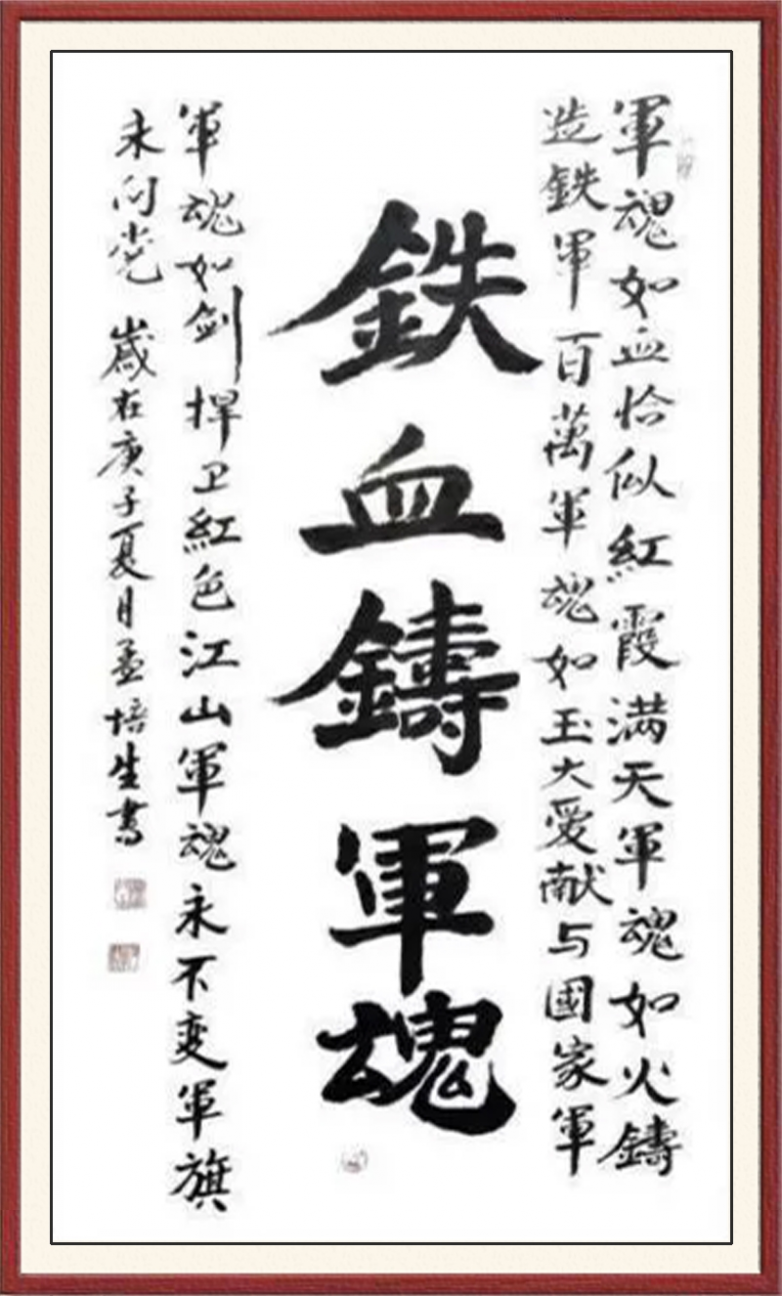 軍魂如血恰似紅霞满天軍魂如火鑄
造鉄軍百萬軍魂如玉大愛献与國家軍
鉄血鑄軍魂
軍魂如剑捍卫紅色江山軍魂永不变軍旗
永向党 歲在庚子夏月孟培生書